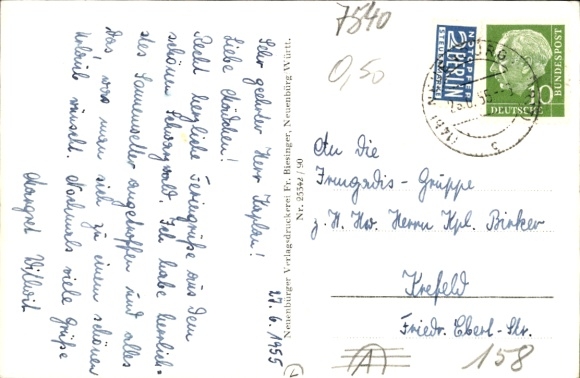 27. 6. 1955
Sehr geehrter Herr Kaplan!
Liebe Mädchen!
Recht herzliche Feriengrüße aus dem
schönen Schwarzwald. Ich habe herrlich-
stes Sonnenwetter angetroffen und alles
das, was man sich zu einem schönen
Urlaub wünscht. Nochmals viele Grüße
Margret
Neuenbürger Verlagsdruckerei Fr. Biesinger, Neuenbürg Württ.
Nr. 25342 / 90
7540
0,50
NOTOPFER
2 BERLIN
STEUERMARKE
DEUTSCHE
BUNDESPOST
10
An die
Irmgardis-Gruppe
z. H. Hw. Herrn Kpl. Binker
Krefeld
Friedr. Ebert-Str.
158
A